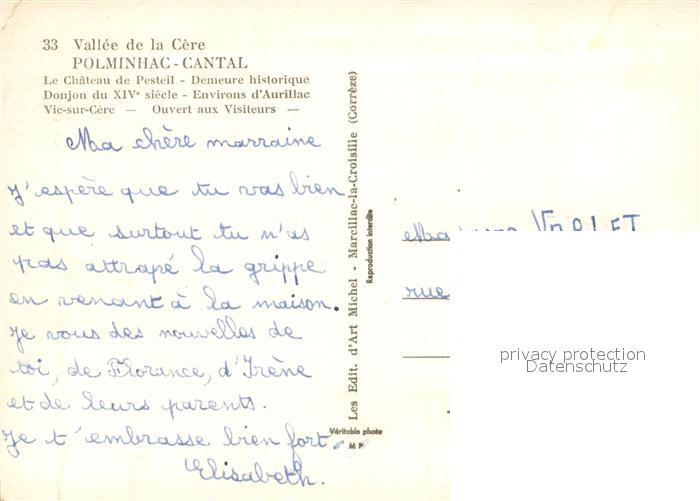 33 Vallée de la Cère
POLMINHAC - CANTAL
Le Château de Pesteil - Demeure historique
Donjon du XIVe siècle - Environs d'Aurillac
Vic-sur-Cère — Ouvert aux Visiteurs —
Ma chère marraine
J'espère que tu vas bien
et que surtout tu n'as
pas attrapé la grippe
en venant à la maison.
Je vous des nouvelles de
toi, de Florance, d'Irène
et de leurs parents.
Je t'embrasse bien fort.
Elisabeth.
Les Edit. d'Art Michel - Marcillac-la-Croisille (Corrèze)
Reproduction interdite
Véritable photo
M P
rue
privacy protection
Datenschutz